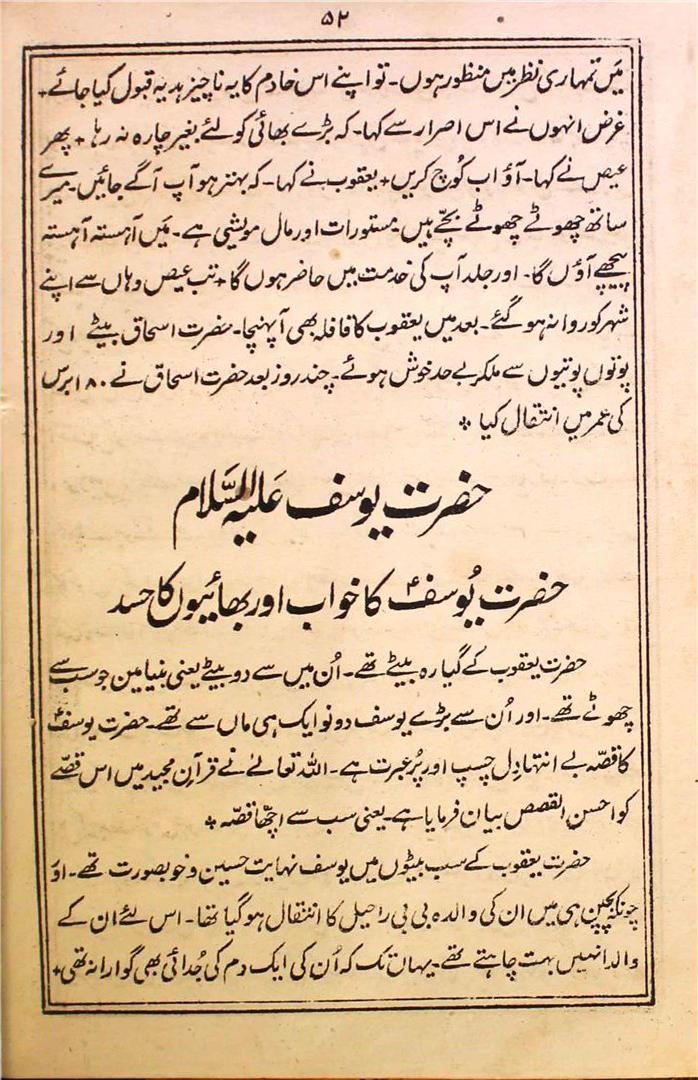 ۵۲
میَں تمہاری نظر میں منظور ہوں۔ تو اپنے اس خادم کا یہ ناچیز ہدیہ قبول کیا جائے +
غرض انہوں نے اس اصرار سے کہا۔ کہ بڑے بھائی کو لئے بغیر چارہ نہ رہا + پھر
عیص نے کہا۔ آؤ اب کُوچ کریں + یعقوب نے کہا۔ کہ بہتر ہو آپ آگے جائیں۔ میرے
ساتھ چھوٹے چھوٹے بچّے ہیں۔ مستورات اور مال مویشی ہے۔ میَں آہستہ آہستہ
پیچھے آؤں گا۔ اور جلد آپ کی خدمت میں حاضر ہوں گا + تب عیص وہاں سے اپنے
شہر کو روانہ ہو گئے۔ بعد میں یعقوب کا قافلہ بھی آ پہنچا۔ حضرت اسحاق بیٹے اور
پوتوں پوتیوں سے ملکر بے حد خوش ہوئے۔ چند روز بعد حضرت اسحاق نے ۱۸۰ برس
کی عمر میں انتقال کیا ٭
حضرت یوسف عَلَیہِ السَّلام
حضرت یُوسفؑ کا خواب اور بھائیوں کا حسد
حضرت یعقوب کے گیارہ بیٹے تھے۔ اُن میں سے دو بیٹے یعنی بنیامین جو سب سے
چھوٹے تھے۔ اور اُن سے بڑے یوسف دونو ایک ہی ماں سے تھے۔ حضرت یوسفؑ
کا قصّہ بے انتہا دِل چسپ اور پُر عبرت ہے۔ اللہ تعالےٰ نے قرآنِ مجید میں اس قصّے
کو احسن القصص بیان فرمایا ہے۔ یعنی سب سے اچّھا قصّہ ٭
حضرت یعقوب کے سب بیٹوں میں یوسف نہایت حسین و خوبصورت تھے۔ اوَ
چونکہ بچپن ہی میں ان کی والدہ بی بی راحیل کا انتقال ہو گیا تھا۔ اس لئے ان کے
والد انہیں بہت چاہتے تھے۔ یہاں تک کہ اُن کی ایک دم کی جُدائی بھی گوارا نہ تھی +